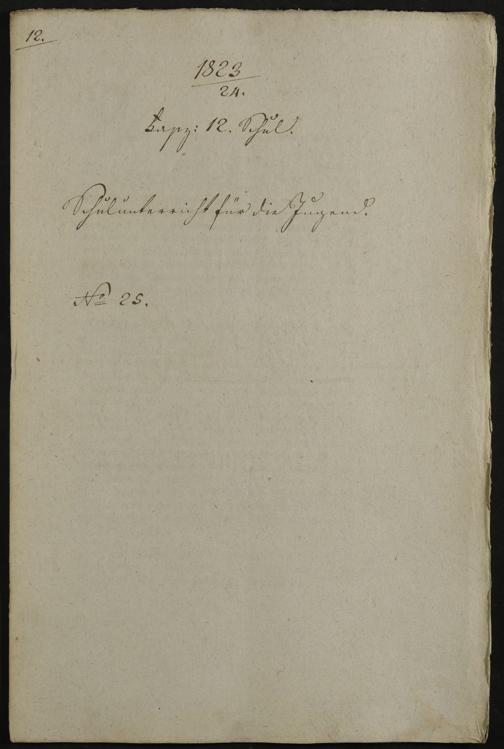 12.
1823
24.
12. Schul.
Schulunterricht für die Jugend.
No 25.